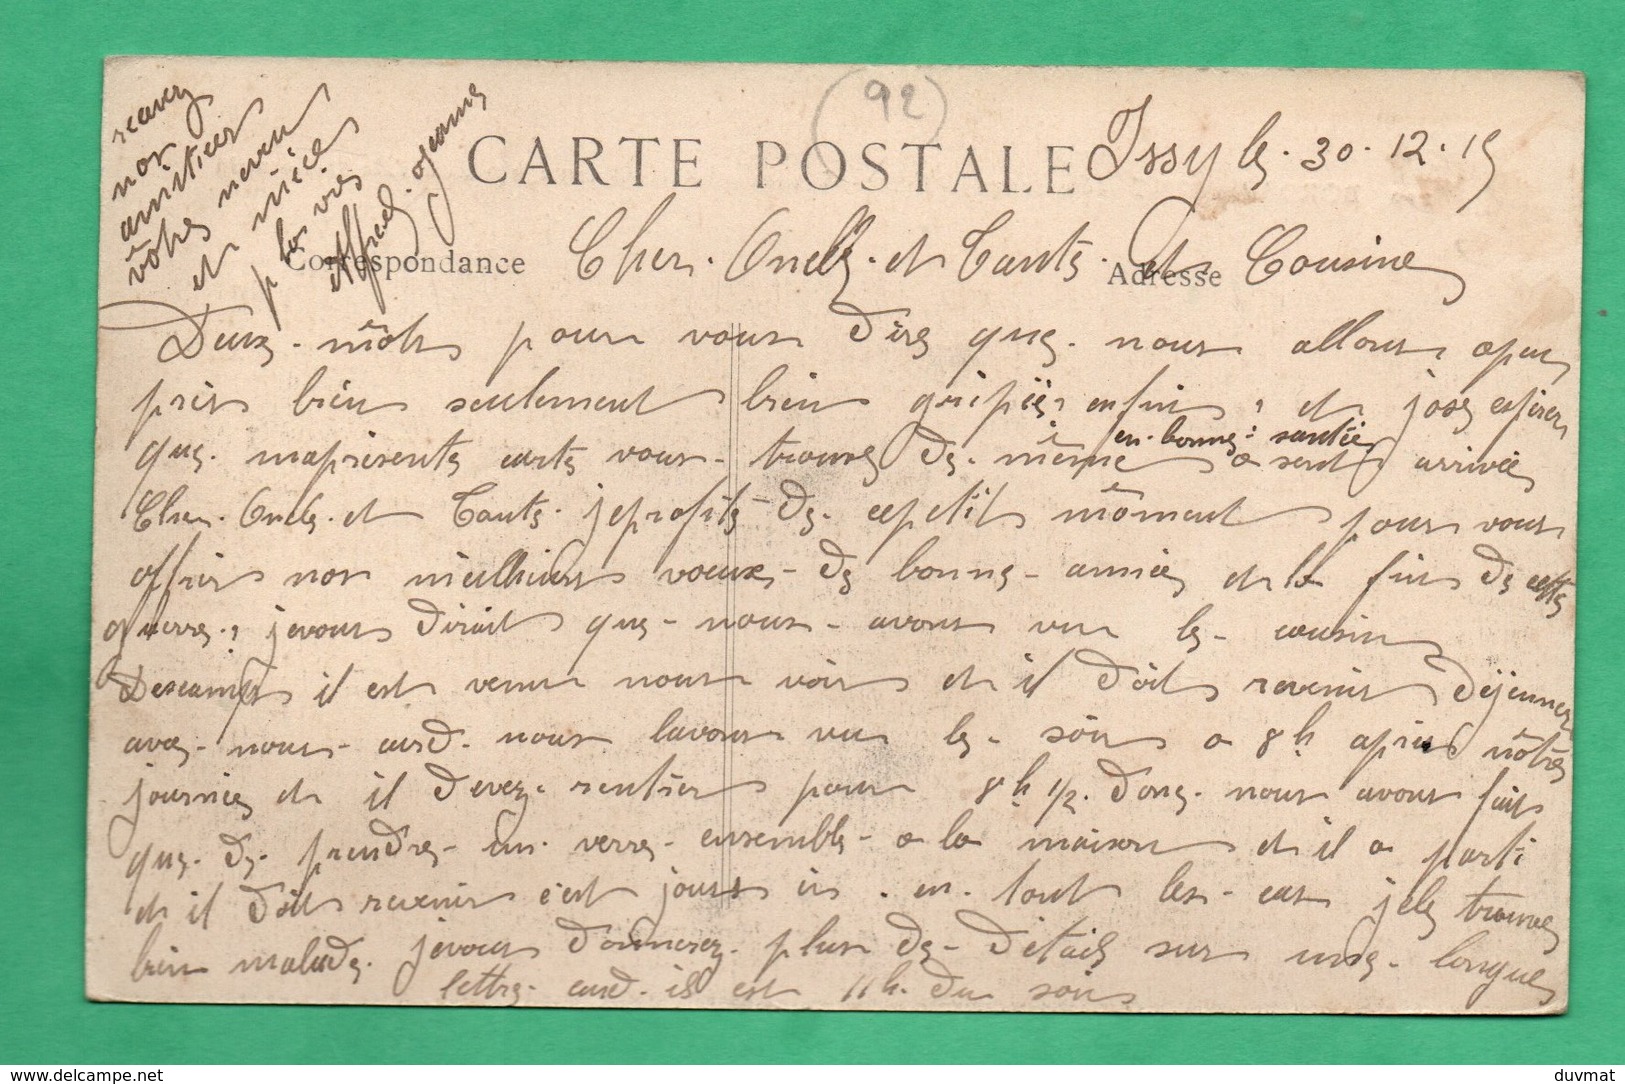 (92)
CARTE POSTALE
Issy le. 30. 12. 15
Correspondance
Adresse
Cher. Oncle. et Tante. et Cousine
Deux. môts pour vous dire que. nous allons apeu
près bien seulement bien gripié, enfin, et jose espérer
que. maprésente carte vous. trouve de. même
en. bonne: santée
a sent arrivée
Cher. Oncle. et Tante. jeprofite de. cepetit môment pour vous
offrir nos meilleurs voeux. de bonne. année et la fin de cette
guerre., jevous dirait que. nous. avons vu le. cousin
Descamps il est venu nous voir et il dôit revenir déjeuner
avec. nous. card. nous lavons vu le. sôir a 8h après nôtre
journée et il devez. rentrer pour 8h 1/2. donc. nous avons fait
que. de. prendre. un. verre. ensemble. a la maison et il a parti
et il dôit revenir c'est jours ci. en. tout les. cas jele trouve
bien malade. jevous donnerez. plus de. détail sur une. longue
lettre. card. il est 11h. du soir
recevez
nos
amitiés
vôtres neveu
et nièce
p la vie
et Alfred.